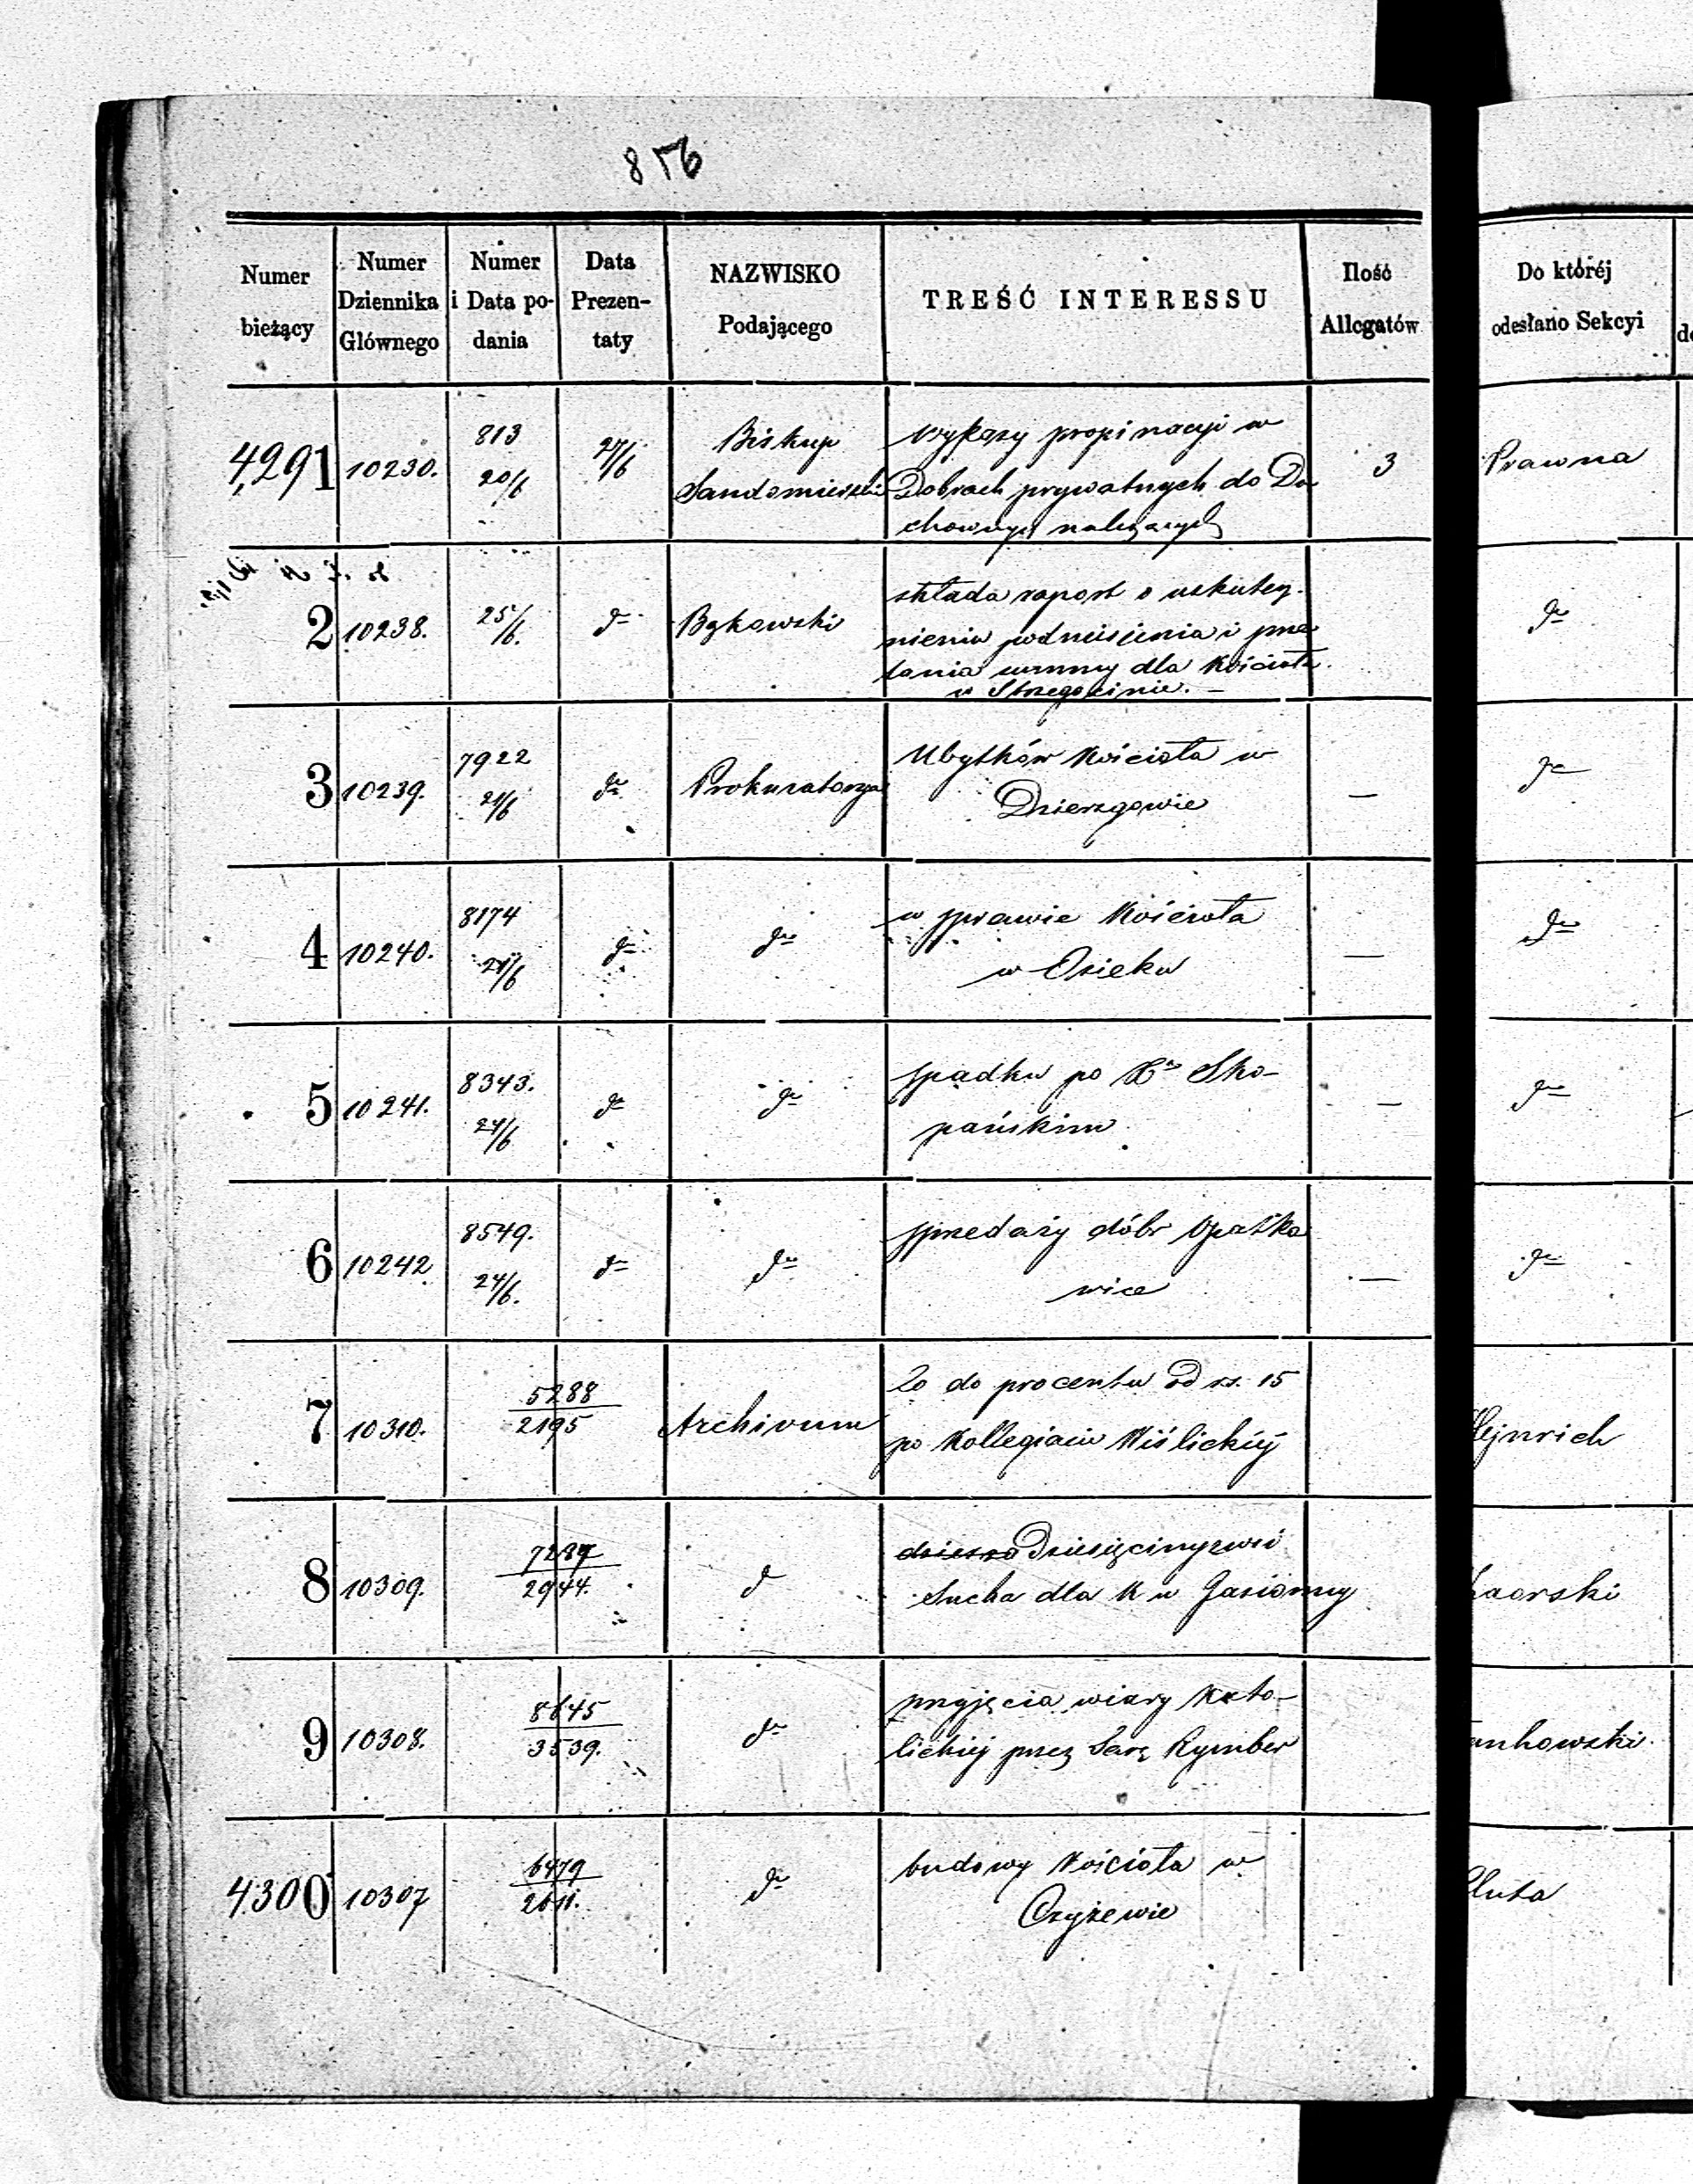 876
Numer bieżący
Numer Dziennika Głównego
Numer i Data podania
Data Prezentaty
NAZWISKO Podającego
TREŚĆ INTERESSU
Ilość Allegatów
Do któréj odesłano Sekcyi
4,291 10230. 813 20/6 27/6 Biskup Sandomierski
wykazy propinacyi w
Dobrach prywatnych do Du
chownych należących
3 Prawna
2 10238. 25/6. dº Bykowski
składa raport o uskutecz
nieniu podniesienia i
dla Kościoła
w Strzegocinie. –
dº
3 10239. 7922 24/6 dº Prokuratorya
Ubytków Kościoła w
Dzierzgowie
— dº
4 10240. 8174 24/6 dº dº
w sprawie Kościoła
w Osieku
— dº
5 10241. 8343. 24/6 dº dº
spadku po Xº Sko-
pańskim
— dº
6 10242 8549. 24/6. dº dº
sprzedaży dóbr Opatko
wice
— dº
7 10310. 5288 2195 Archivum
Co do procentu od rs. 15
po Kollegiacie Wiślickiéj
Hejnrich
8 10309. 7287 2944. d
Dziesięciny z wsi
Sucha dla K w Jasionny
9 10308. 8645 3539. dº
przyjęcia wiary Kato-
lickiej przez Sarę Rymber
4300 10307 6479 2611. dº
budowy Kościoła w
Czyżewie